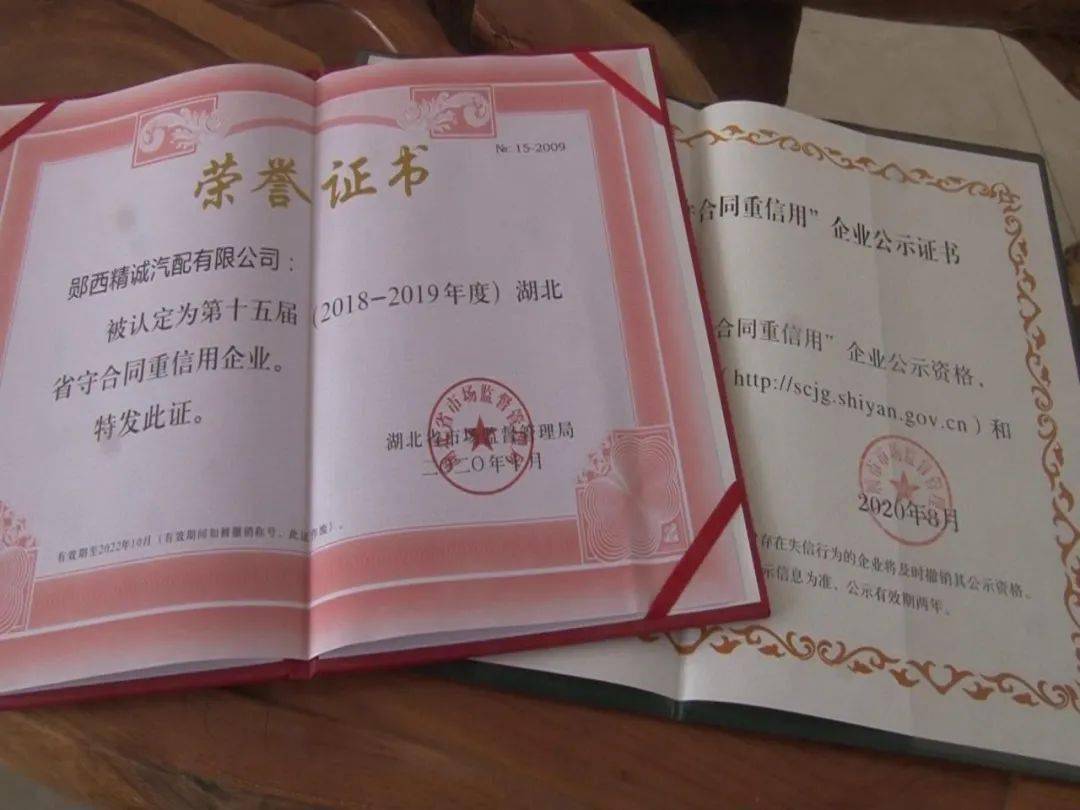 荣誉证书
№: 15-2009
郧西精诚汽配有限公司：
被认定为第十五届（2018-2019年度）湖北
省守合同重信用企业。
特发此证。
湖北省市场监督管理局
二〇二〇年十月
有效期至2022年10月（有效期间如被撤销称号，此证作废）。
合同重信用”企业公示证书
合同重信用”企业公示资格，
（http://scjg.shiyan.gov.cn）和
2020年8月
存在失信行为的企业将及时撤销其公示资格。
示信息为准，公示有效期两年。